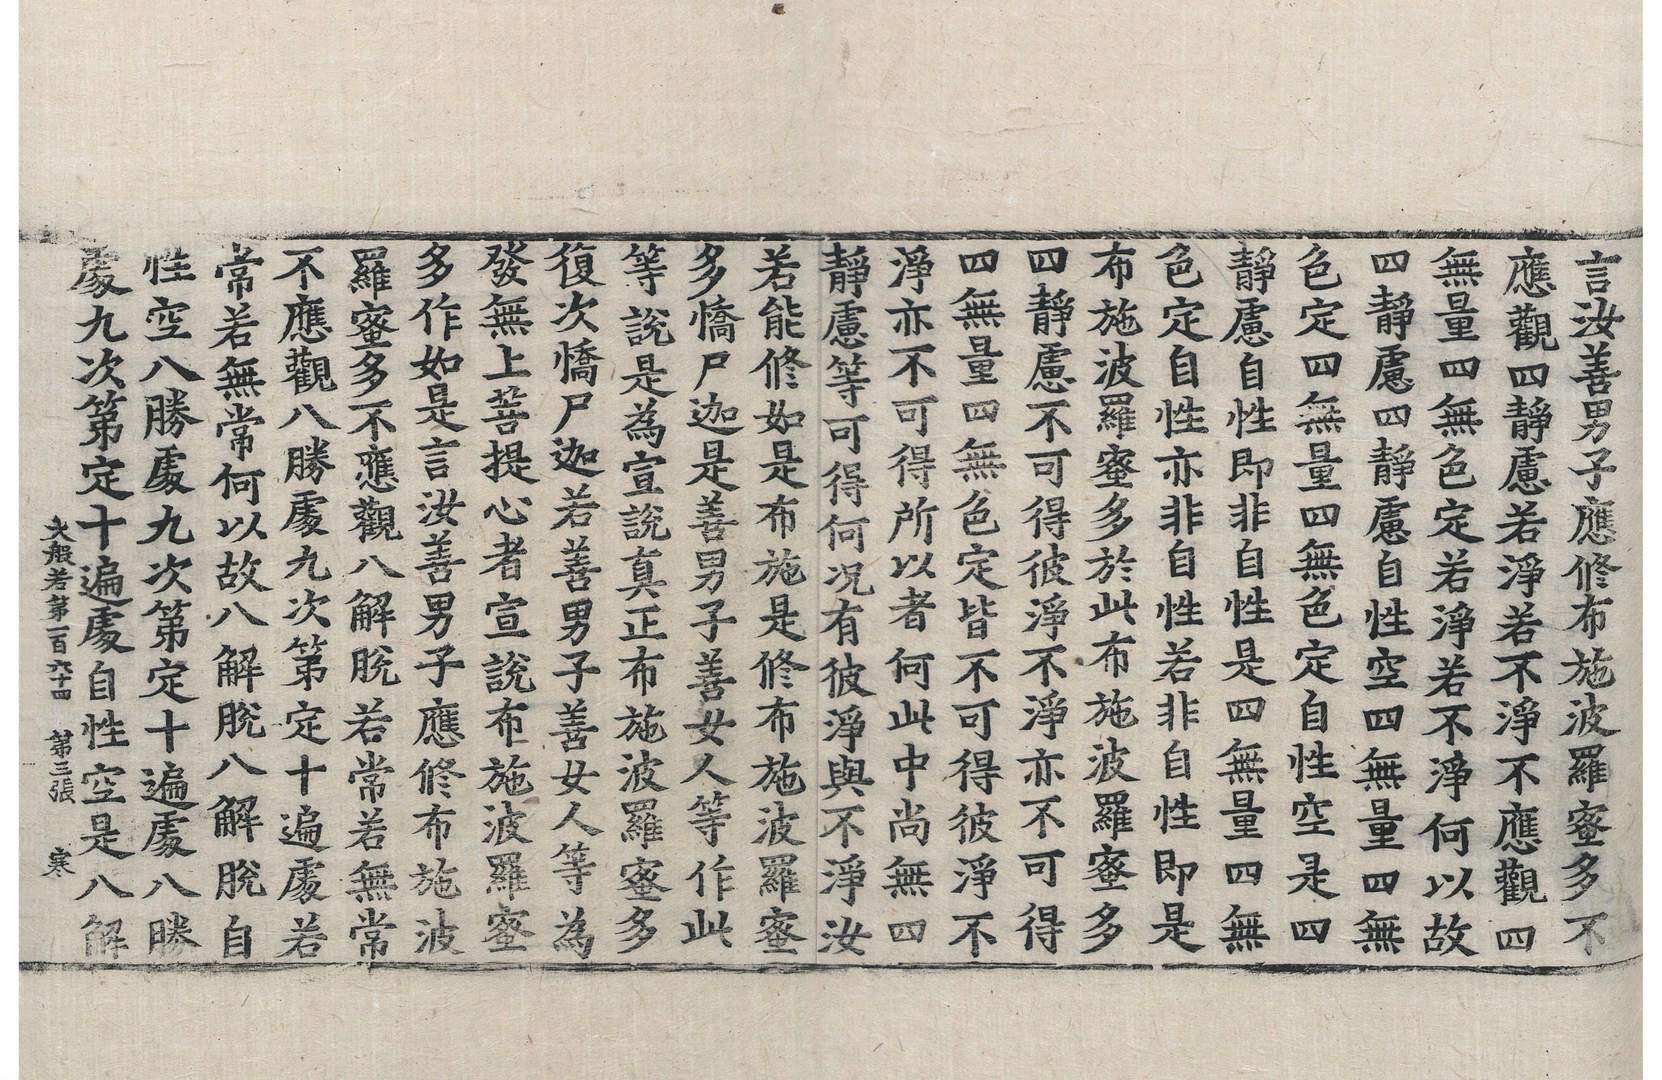 言汝善男子應修布施波羅蜜多不
應觀四靜慮若淨若不淨不應觀四
無量四無色定若淨若不淨何以故
四靜慮四靜慮自性空四無量四無
色定四無量四無色定自性空是四
靜慮自性即非自性是四無量四無
色定自性亦非自性若非自性即是
布施波羅蜜多於此布施波羅蜜多
四靜慮不可得彼淨不淨亦不可得
四無量四無色定皆不可得彼淨不
淨亦不可得所以者何此中尚無四
靜慮等可得何況有彼淨與不淨汝
若能修如是布施是修布施波羅蜜
多憍尸迦是善男子善女人等作此
等說是為宣說真正布施波羅蜜多
復次憍尸迦若善男子善女人等為
發無上菩提心者宣說布施波羅蜜
多作如是言汝善男子應修布施波
羅蜜多不應觀八解脫若常若無常
不應觀八勝處九次第定十遍處若
常若無常何以故八解脫八解脫自
性空八勝處九次第定十遍處八勝
處九次第定十遍處自性空是八解
大般若第一百六十四 第三張 寒